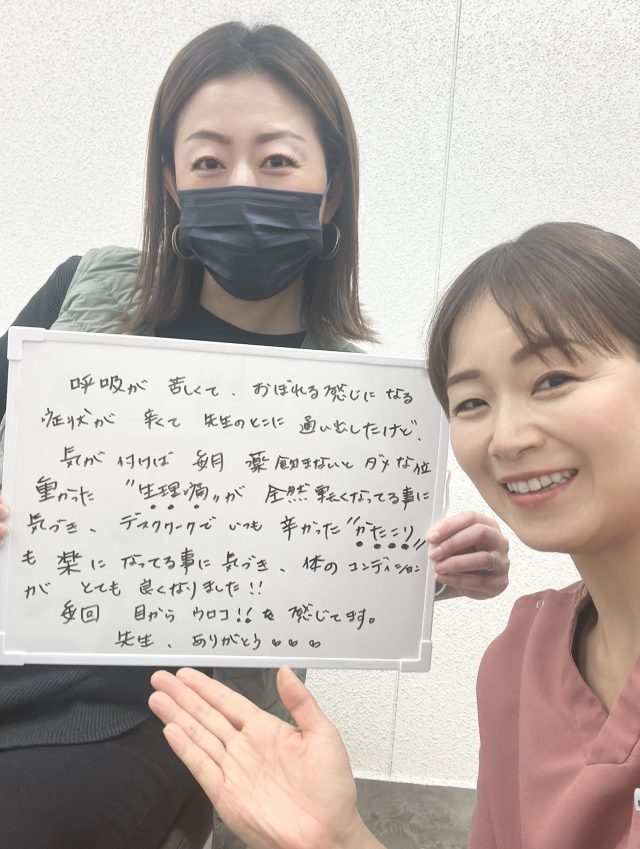 呼吸が 苦しくて、おぼれる感じになる
症状が 辛くて 先生のとこに 通い出したけど、
気が 付けば 毎月 薬飲まないと ダメな位
重かった "生理痛"が 全然 軽くなってる事に
気づき、デスクワークで いつも 辛かった "かたこり"
も 楽に なってる事に 気づき、体の コンディション
が とても 良くなりました!!
毎回 目から ウロコ!! を 感じてます。
先生、ありがとう